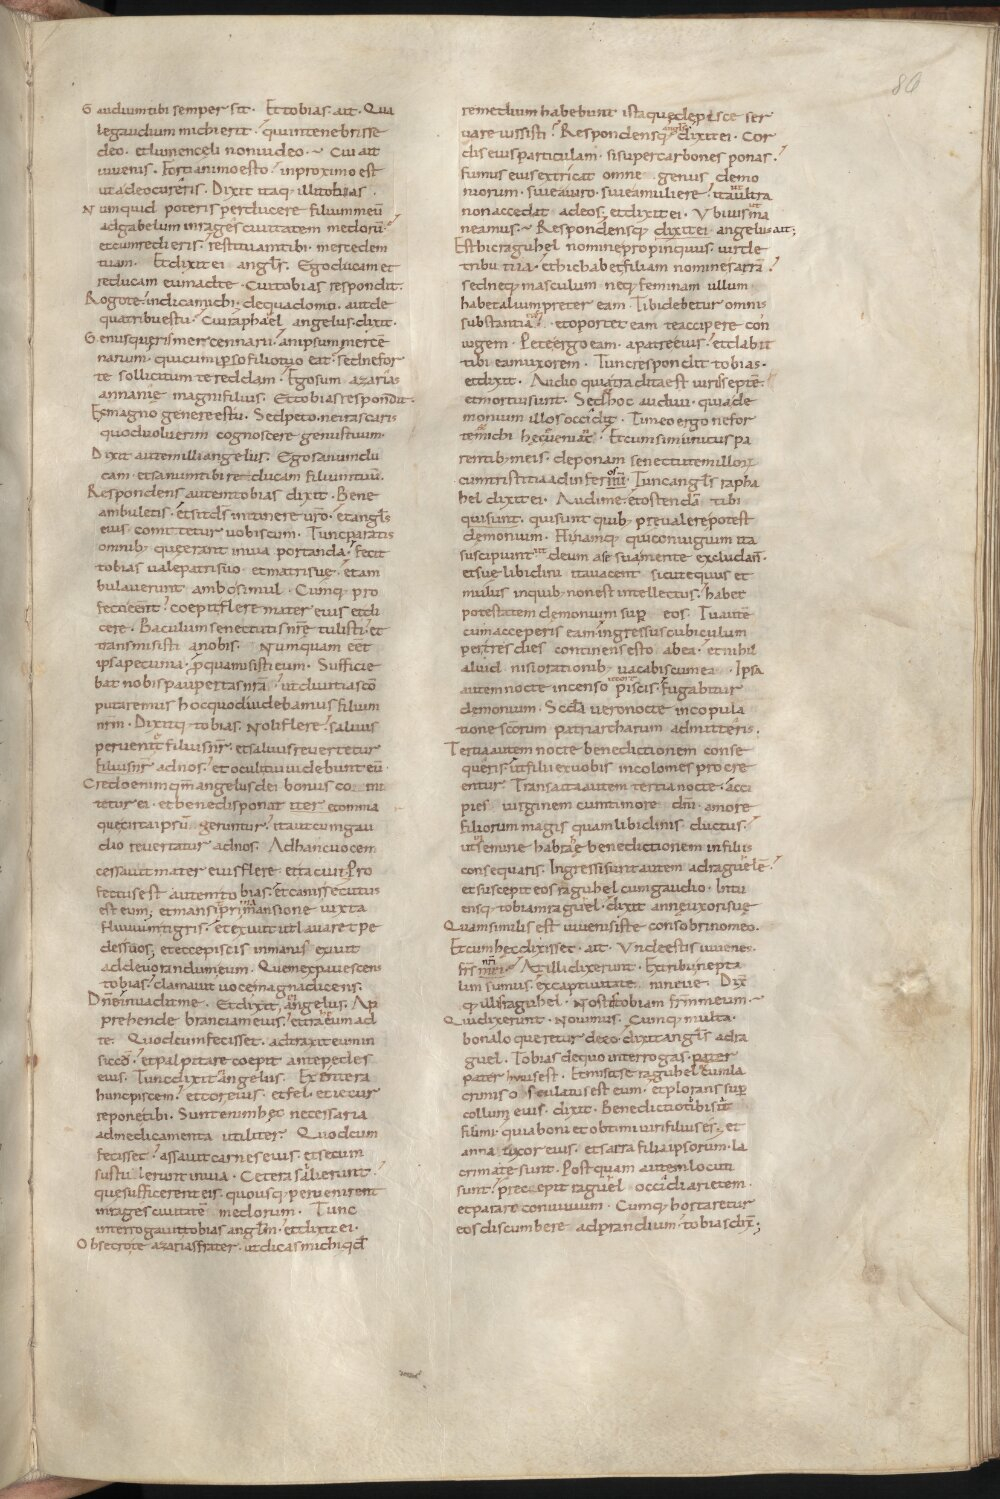 80
Gaudium tibi semper sit. Et tobias ait. Qua
le gaudium michi erit. qui in tenebris se
deo. et lumen cęli non video. Cui ait
iuvenis. Forti animo esto. in proximo est
ut a deo cureris. Dixit itaq; illi tobias.
Numquid poteris perducere filium meū
ad gabelum in rages civitatem medorū.
et cum redieris. restituam tibi mercedem
tuam. Et dixit ei angl̄s. Ego ducam et
reducam eum ad te. Cui tobias respondit.
Rogo te. indica michi. de qua domo. aut de
qua tribu es tu. Cui raphael angelus dixit.
Genus queris mercennarii. an ipsum mercen
narium. qui cum ipso filio tuo eat. sed ne for
te sollicitum te reddam. Ego sum azarias
annanię magni filius. Et tobias respondit.
Ex magno genere es tu. Sed peto. ne irascaris
quod voluerim cognoscere genus tuum.
Dixit autem illi angelus. Ego sanum du
cam. et sanum tibi reducam filium tuū.
Respondens autem tobias dixit. Bene
ambuletis. et sit ds̄ in itinere vr̄o. et angl̄s
eius comitetur vobiscum. Tunc paratis
omnib; quę erant in via portanda. fecit
tobias vale patri suo. et matri suę. et am
bulaverunt ambo simul. Cumq; pro
fecti eēnt. coepit flere mater eius et di
cere. Baculum senectutis nr̄e tulisti. et
transmisisti a nobis. Numquam eēt
ipsa pecunia. p̄ quam misisti eum. Sufficie
bat nobis paupertas nr̄a. ut divitias com
putaremus hoc quod videbamus filium
nr̄m. Dixitq; tobias. Noli flere. salvus
perveniet filius nr̄. et salvus revertetur
filius nr̄ ad nos. et oculi tui videbunt eū.
Credo enim qm̄ angelus dei bonus comi
tetur ei. et bene disponat iter et omnia
que circa ipsū geruntur. ita ut cum gau
dio revertatur ad nos. Ad hanc vocem
cessavit mater eius flere et tacuit. Pro
fectus est autem tobias. et canis secutus
est eum; et mansit prima mansione iuxta
fluvium tigris. et exivit ut lavaret pe
des suos; et ecce piscis inmanis exivit
ad devorandum eum. Quem expavescens
tobias. clamavit voce magna dicens.
Dn̄e invadit me. Et dixit ei angelus. Ap
prehende branciam eius. et trahe eum ad
te. Quod cum fecisset. adtraxit eum in
siccō. et palpitare coepit ante pedes
eius. Tunc dixit ei angelus. Exentera
hunc piscem. et cor eius. et fel. et iecur
repone tibi. Sunt enim hęc necessaria
ad medicamenta utiliter. Quod cum
fecisset. assavit carnes eius. et secum
sustulerunt in via. Cetera salierunt.
quę sufficerent eis. quousq; pervenirent
in rages civitatē medorum. Tunc
interrogavit tobias angl̄m. et dixit ei.
Obsecro te azarias frater. ut dicas michi. qd̄
remedium habebunt ista quę de pisce ser
vare iussisti. Respondensq; angl̄s dixit ei. Cor
dis eius particulam. si super carbones ponas.
fumus eius extricat omne genus demo
niorum. sive a viro. sive a muliere. ita ut ultra
non accedat ad eos. et dixit ei. Ubi vis ut ma
neamus. Respondensq; dixit ei angelus ait;
Est hic raguhel nomine. propinquus. vir de
tribu tua. et hic habet filiam nomine sarrā.
sed neq; masculum neq; feminam ullum
habet alium preter eam. Tibi debetur omnis
substantia. et oportet eam te accipere con
iugem. Pete ergo eam a patre eius. et dabit
tibi eam uxorem. Tunc respondit tobias.
et dixit. Audio quia tradita est viris septē.
et mortui sunt. Sed hoc audivi. quia de
monium illos occidit. Timeo ergo ne for
te michi hęc eveniat. Et cum sim unicus pa
rentib; meis. deponam senectutem illorz
cum tristitia ad inferos. Tunc angl̄s rapha
hel dixit ei. Audi me. et ostendā tibi
qui sunt. quib; prevalere potest
demonium. Hi namq; qui coniugium ita
suscipiunt ut deum a se et sua mente excludant.
et suę libidini ita vacent sicut equus et
mulus in quib; non est intellectus. habet
potestatem demonium sup eos. Tu autē
cum acceperis eam. ingressus cubiculum
per tres dies continens esto ab ea. et nihil
aliud nisi orationib; vacabis cum ea. Ipsa
autem nocte incenso iecore piscis. fugabitur
demonium. Scd̄a vero nocte in copula
tione scōrum patriarcharum admitteris.
Tertia autem nocte benedictionem conse
queris. ut filii ex vobis incolomes procre
entur. Transacta autem tertia nocte. acci
pies virginem cum timore dn̄i. amore
filiorum magis quam libidinis ductus.
ut in semine habrahę benedictionem in filiis
consequaris. Ingressi sunt autem ad raguelē.
et suscepit eos raguhel cum gaudio. Intu
ensq; tobiam raguel. dixit annę uxori suę
Quam similis est iuvenis iste consobrino meo.
Et cum hęc dixisset. ait. Unde estis iuvenes
fr̄s nr̄i. At illi dixerunt. Ex tribu nepta
lim sumus. ex captivitate ninevę. Dix̄
q; illis raguhel. Nostis tobiam fr̄m meum.
Qui dixerunt. Novimus. Cumq; multa
bona loqueretur de eo. dixit angl̄s ad ra
guel. Tobias de quo interrogas. pater
pater huius est. Et misit se raguhel. et cum la
crimis osculatus est eum. et plorans sup
collum eius. dixit. Benedictio tibi sit
fili mi. quia boni et obtimi viri filius es. et
anna uxor eius. et sarra filia ipsorum. la
crimate sunt. Postquam autem locuti
sunt. precepit raguel occidi arietem.
et parare convivium. Cumq; hortaretur
eos discumbere ad prandium. tobias dix̄;